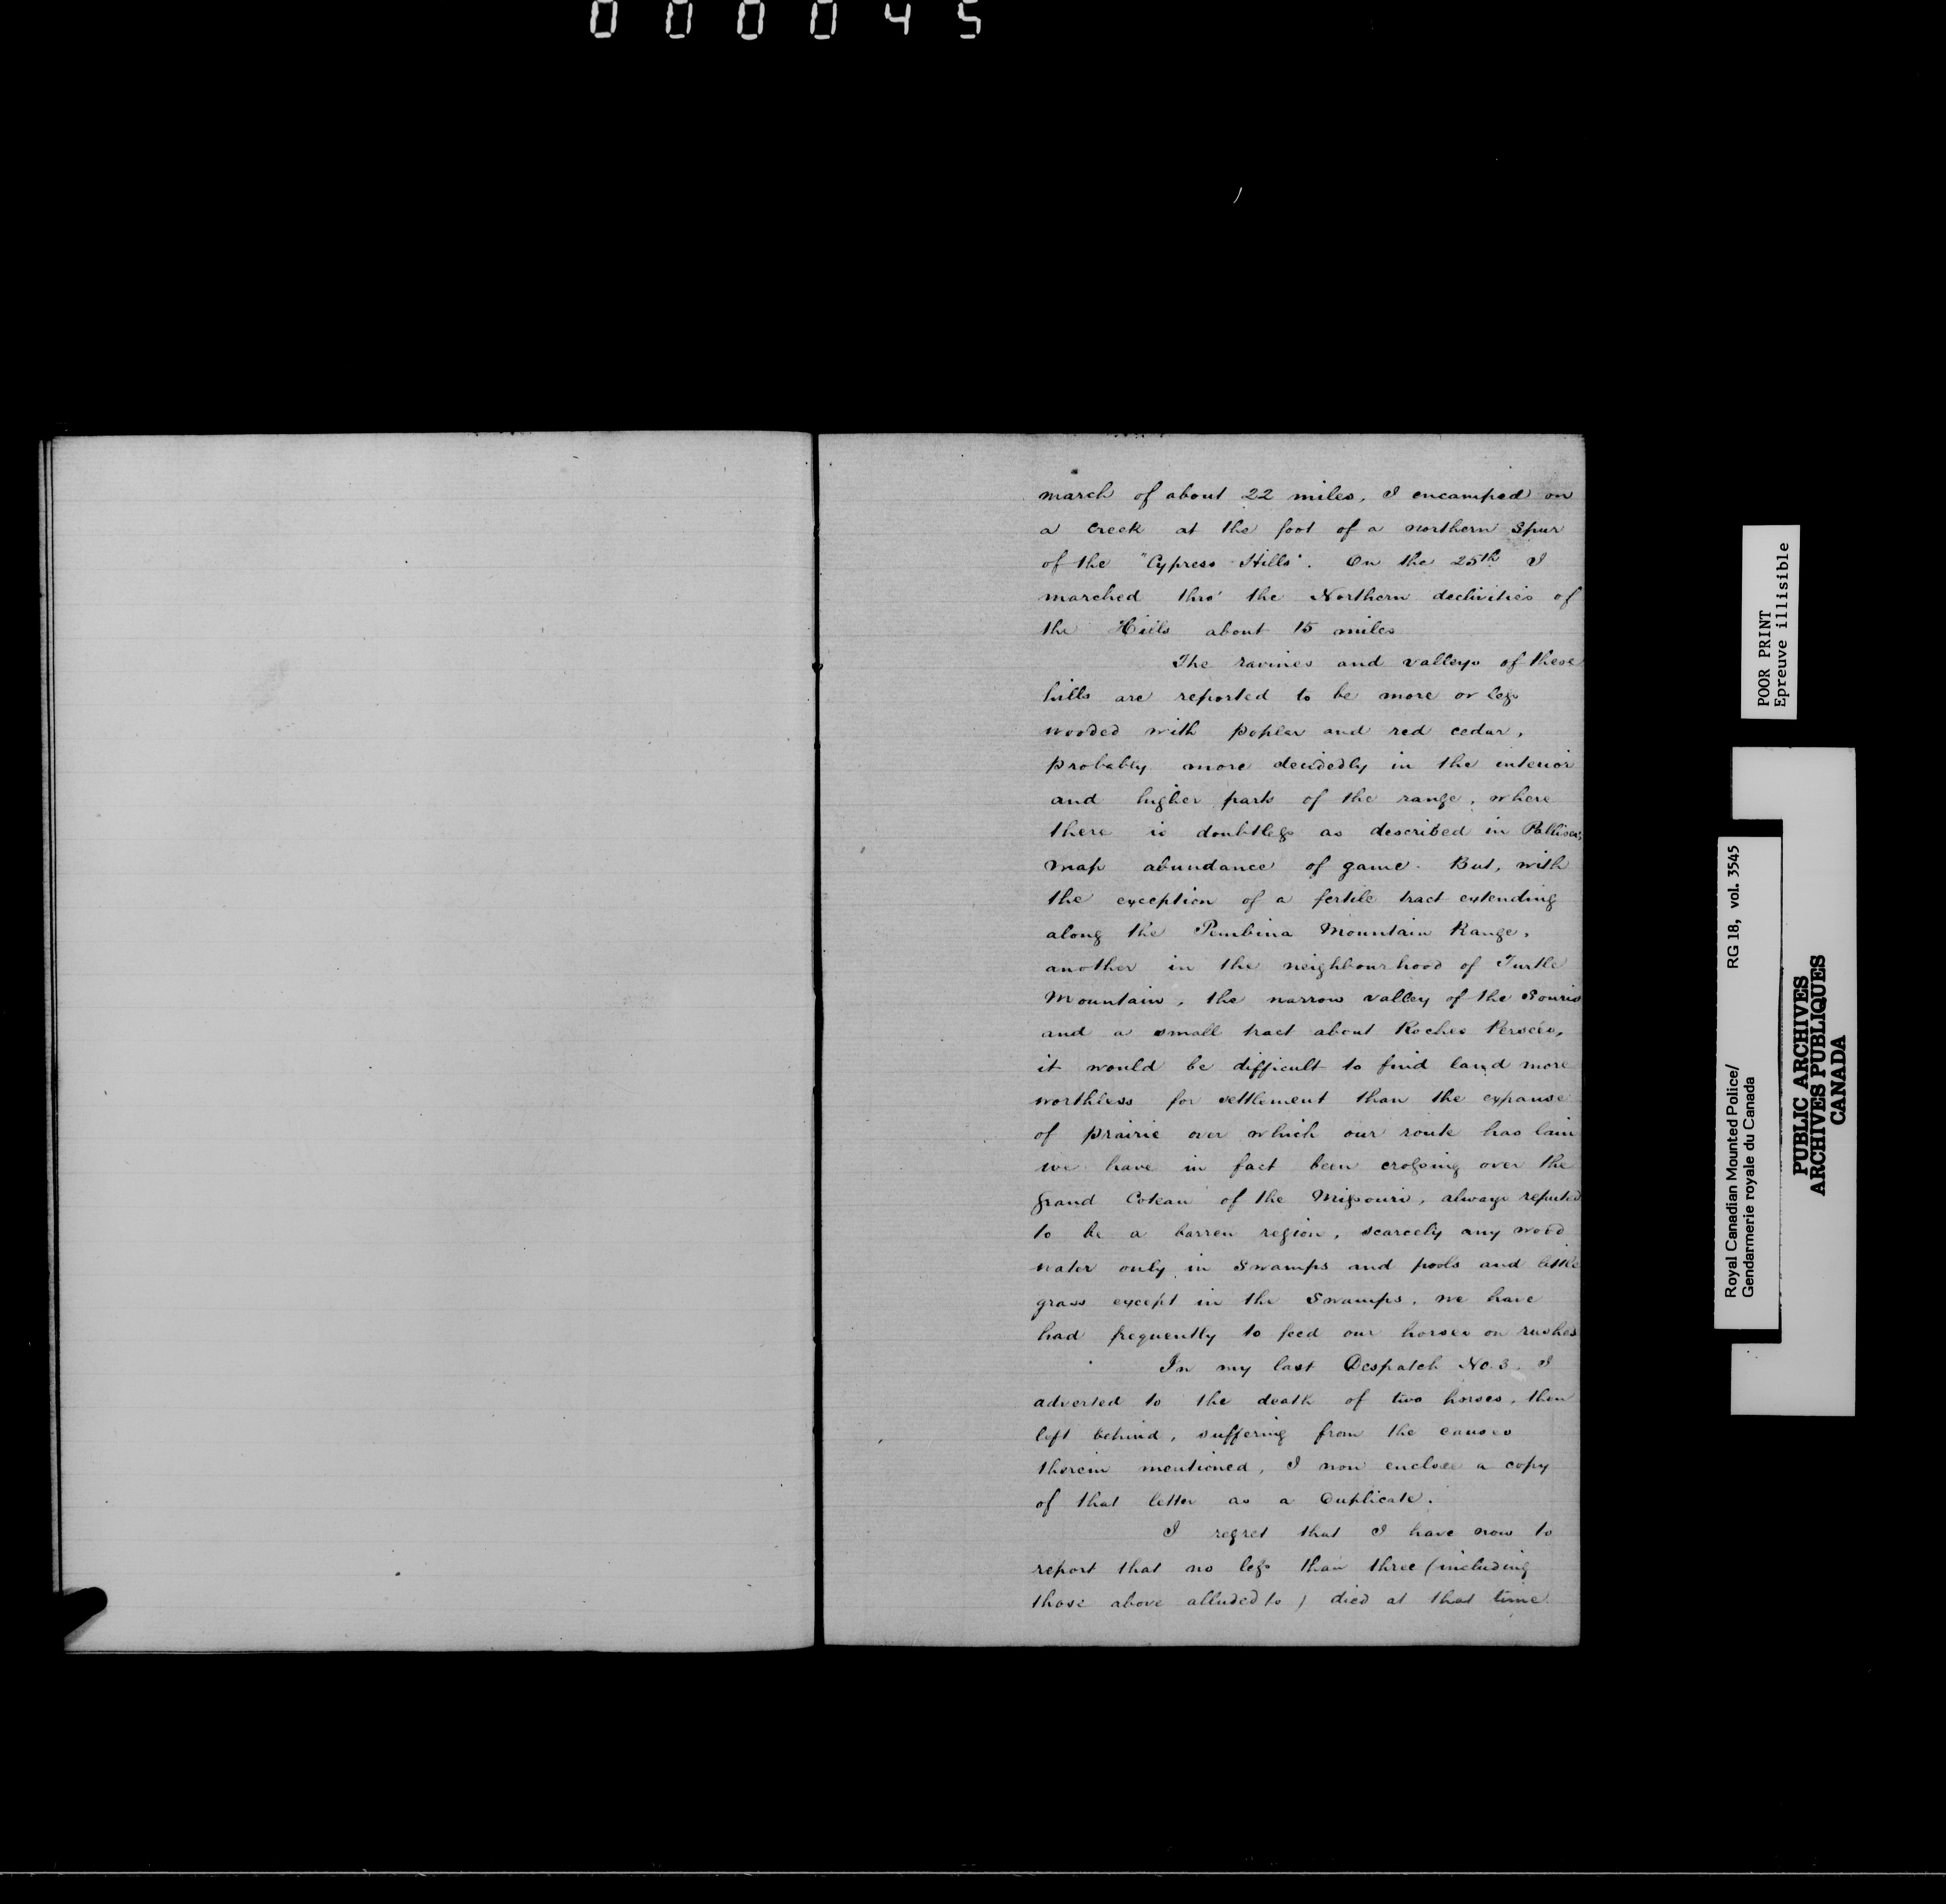 000045
march of about 22 miles, I encamped on
a Creek at the foot of a northern Spur
of the "Cypress Hills". On the 25th I
marched thro' the Northern declivities of
the Hills about 15 miles
The ravines and valleys of these
hills are reported to be more or less
wooded with poplar and red cedar,
probably more decidedly in the interior
and higher parts of the range, where
there is doubtless as described in Palliser's
map abundance of game. But, with
the exception of a fertile tract extending
along the Pembina Mountain Range,
another in the neighbourhood of Turtle
Mountain, the narrow valley of the Souris
and a small tract about Roches Percées,
it would be difficult to find land more
worthless for settlement than the expanse
of prairie over which our route has lain
we have in fact been crossing over the
grand Coteau of the Missouri, always reputed
to be a barren region, scarcely any wood
water only in Swamps and pools and little
grass except in the Swamps. we have
had frequently to feed our horses on rushes
In my last Despatch No. 3. I
adverted to the death of two horses, then
left behind, suffering from the causes
therein mentioned, I now enclose a copy
of that letter as a Duplicate.
I regret that I have now to
report that no less than three (including
those above alluded to) died at that time
POOR PRINT
Epreuve illisible
Royal Canadian Mounted Police/
Gendarmerie royale du Canada
RG 18, vol. 3545
PUBLIC ARCHIVES
ARCHIVES PUBLIQUES
CANADA